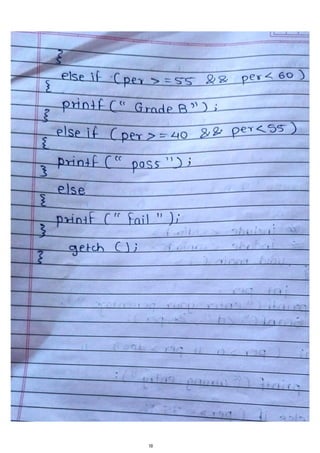 }
else if (per >= 55 && per < 60)
{
printf (" Grade B ");
}
else if (per >= 40 && per < 55)
{
printf (" pass ");
}
else
{
printf (" fail ");
}
getch ();
}
10